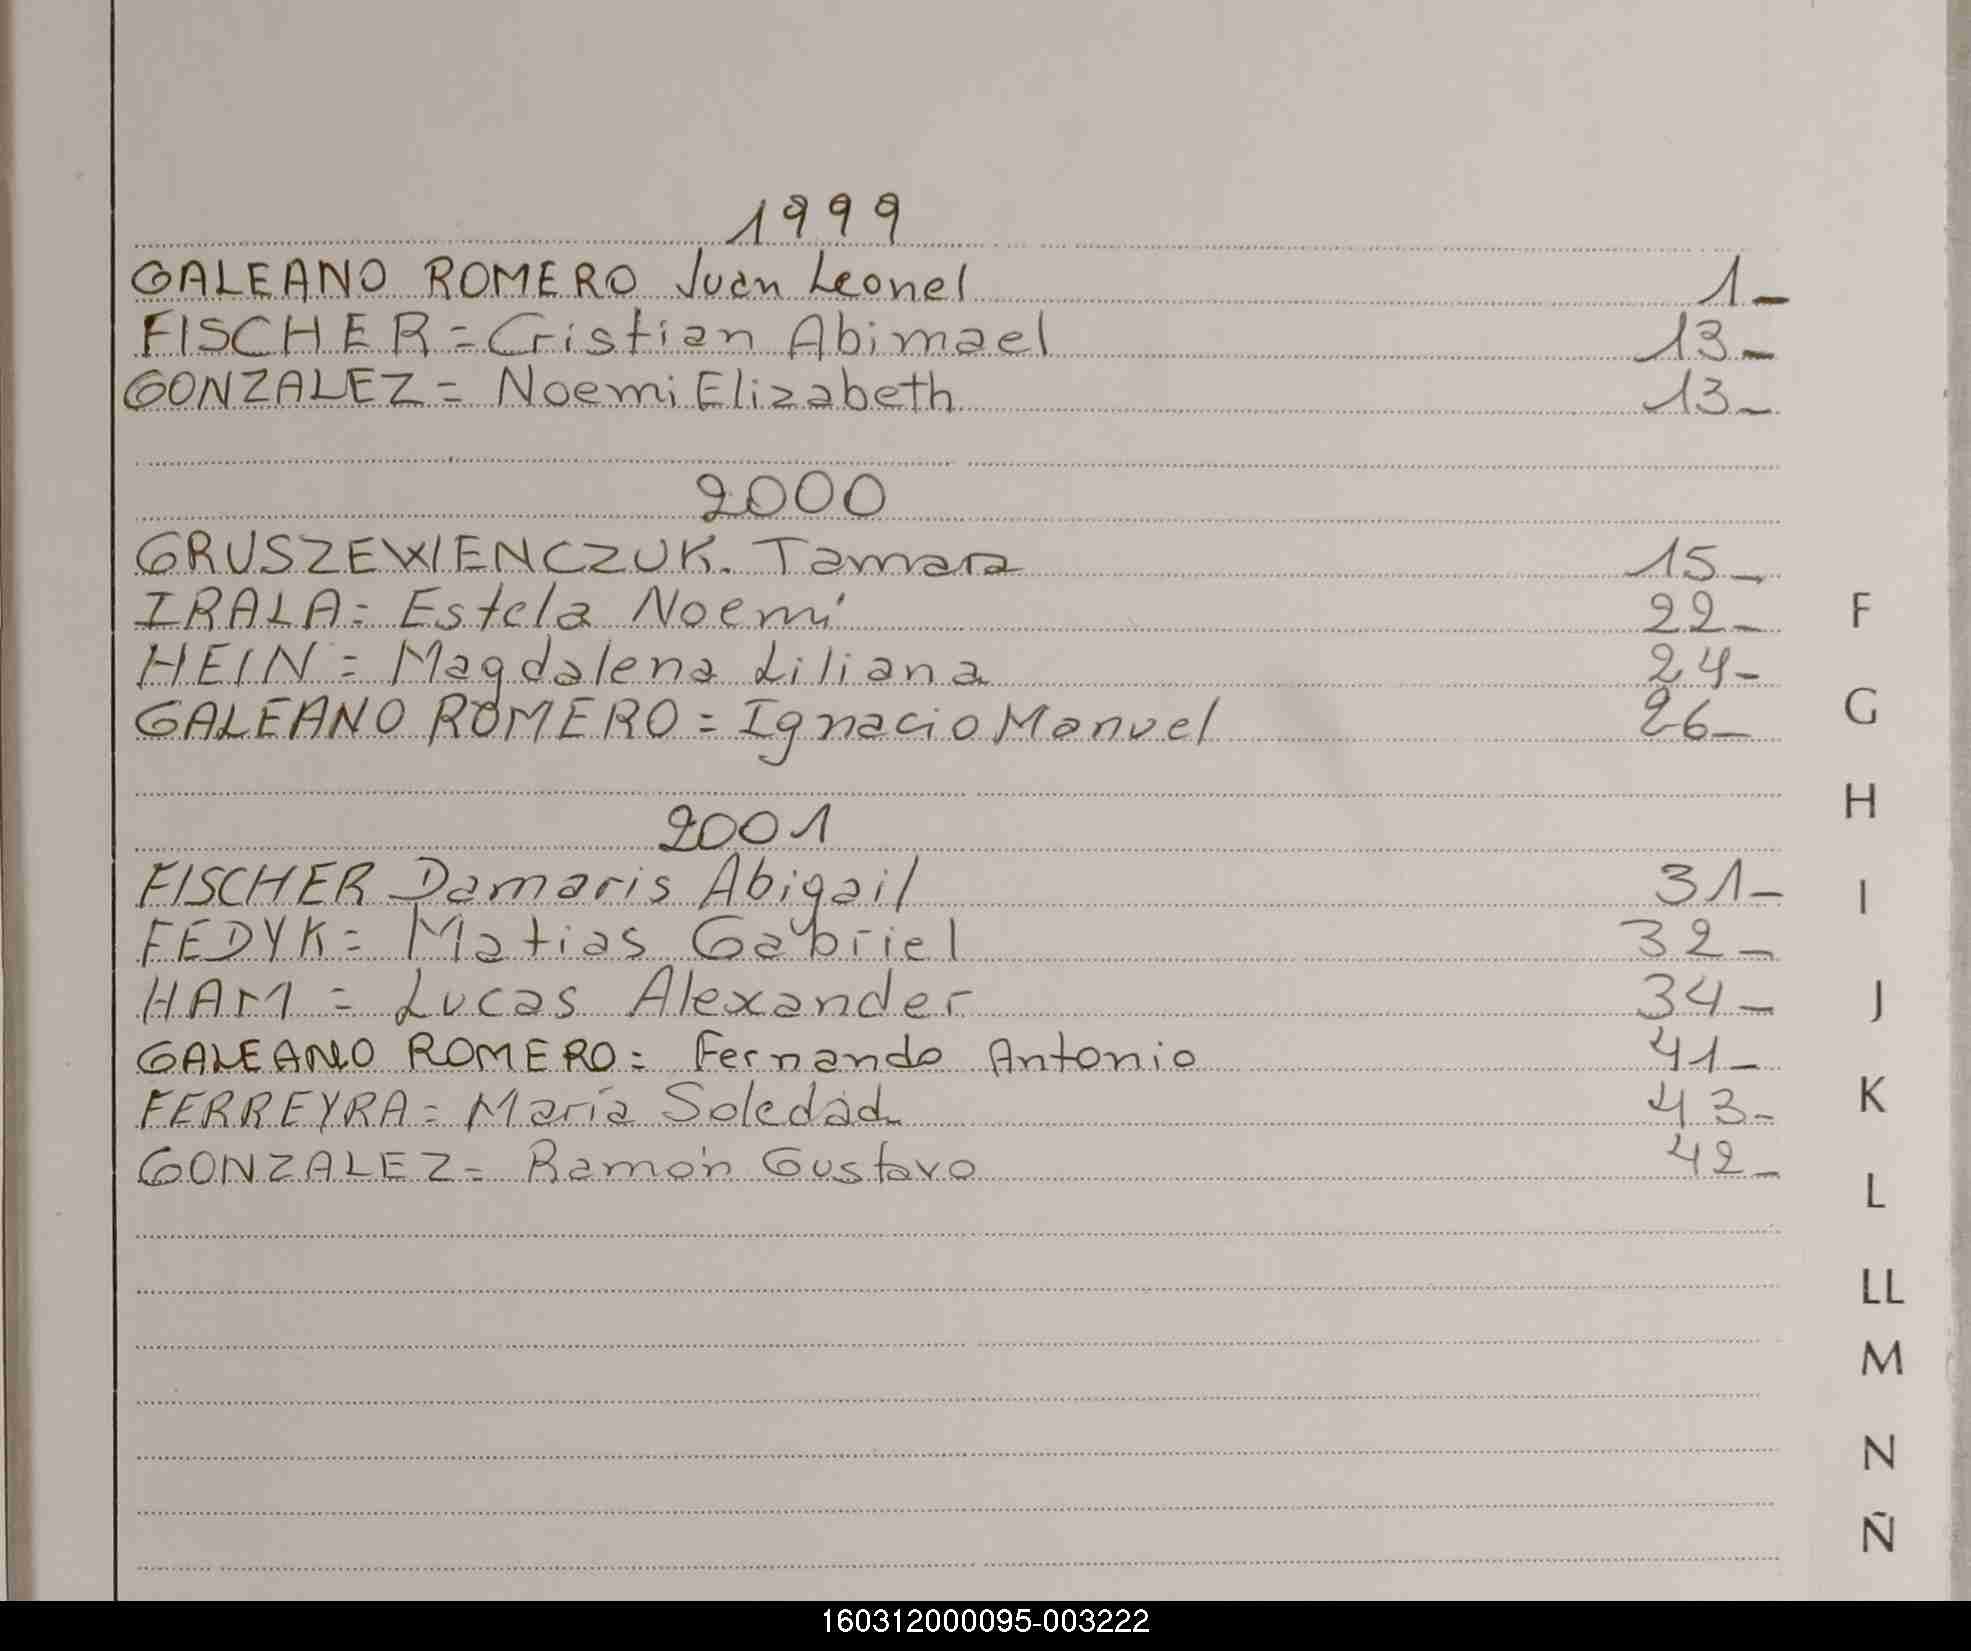 1999
GALEANO ROMERO Juan Leonel 1-
FISCHER = Cristian Abimael 13-
GONZALEZ = Noemi Elizabeth 13-
2000
GRUSZEWIENCZUK. Tamara 15-
IRALA = Estela Noemí 22-
HEIN = Magdalena Liliana 24-
GALEANO ROMERO = Ignacio Manuel 26-
2001
FISCHER Damaris Abigail 31-
FEDYK = Matias Gabriel 32-
HAM = Lucas Alexander 34-
GALEANO ROMERO = Fernando Antonio 41-
FERREYRA = María Soledad 43-
GONZALEZ = Ramón Gustavo 42-
F
G
H
I
J
K
L
LL
M
N
Ñ
160312000095-003222